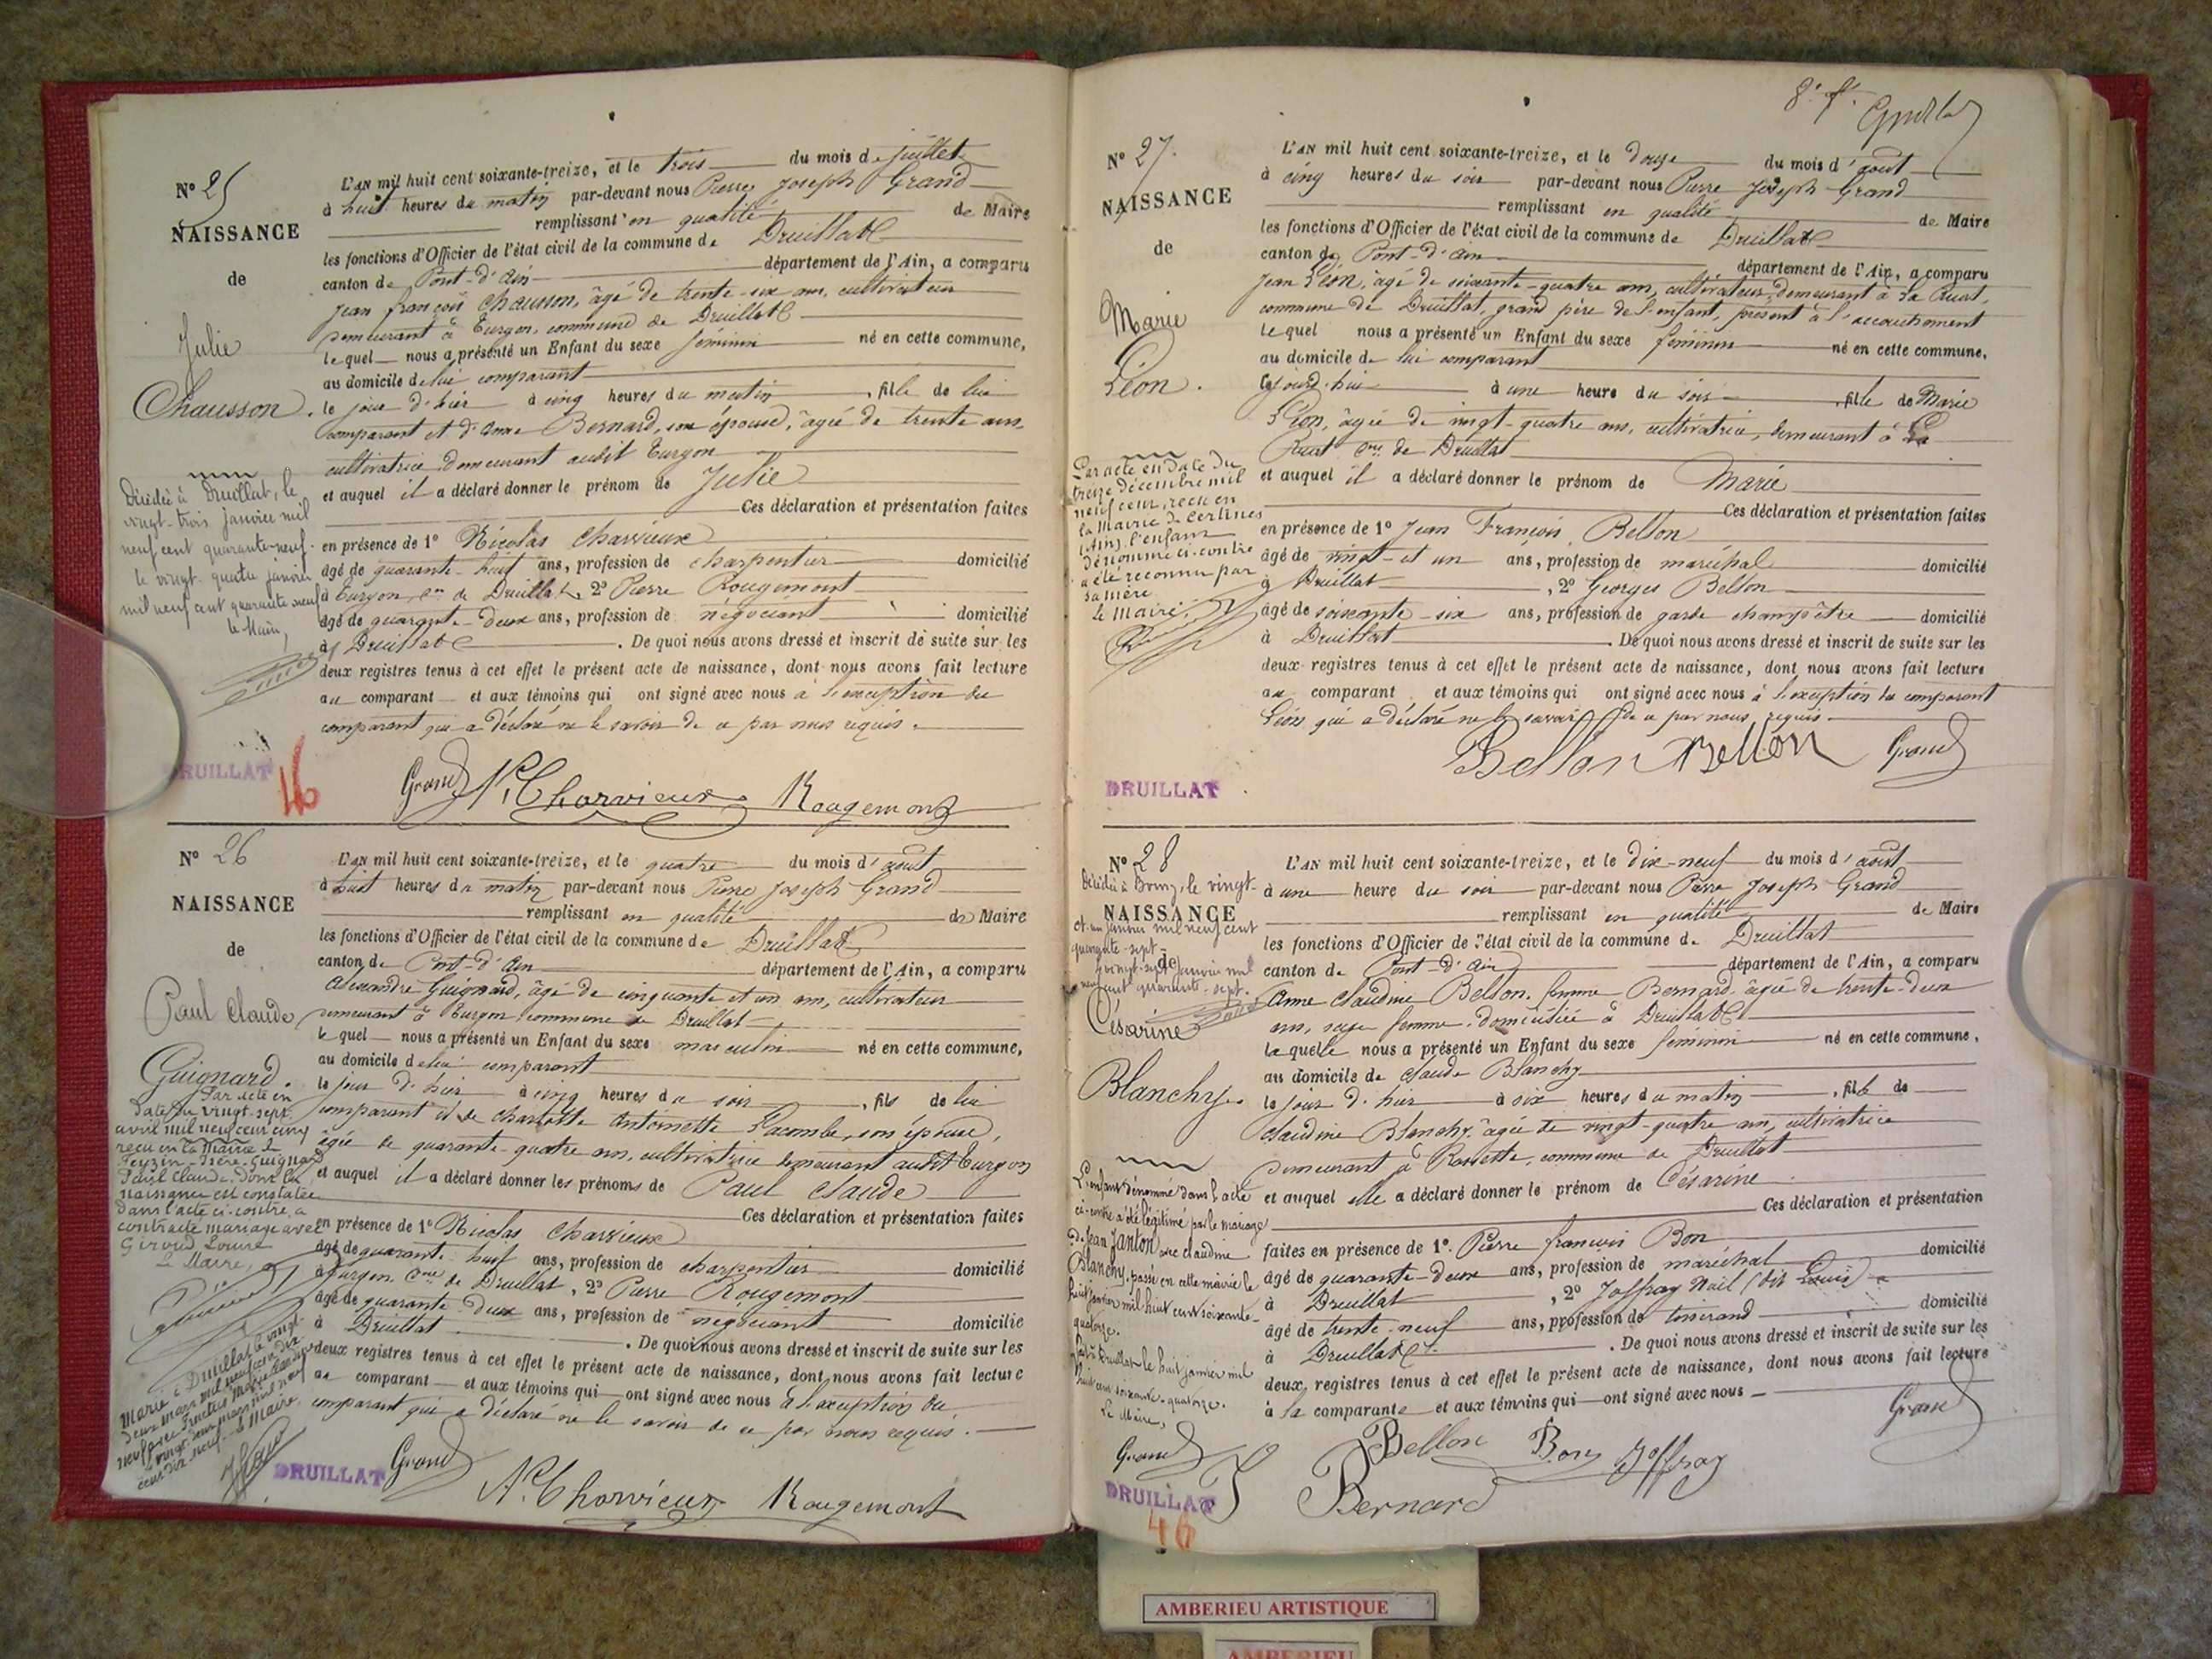 N° 25
NAISSANCE
de
Julie
Chausson.
Décédée à Druillat, le
vingt-trois janvier mil
neuf cent quarante-neuf.
le vingt-quatre janvier
mil neuf cent quarante neuf
le Maire,
L'AN mil huit cent soixante-treize, et le trois du mois de juillet
à huit heures du matin par-devant nous Pierre Joseph Grand
remplissant en qualité de Maire
les fonctions d'Officier de l'état civil de la commune de Druillat
canton de Pont-d'Ain département de l'Ain, a comparu
Jean françois Chausson, âgé de trente-six ans, cultivateur
demeurant à Turgon, commune de Druillat
lequel nous a présenté un Enfant du sexe féminin né en cette commune,
au domicile de lui comparant
le jour d'hier à cinq heures du matin, fille de lui
comparant et d'Anne Bernard, son épouse, âgée de trente ans,
cultivatrice demeurant audit Turgon
et auquel il a déclaré donner le prénom de Julie
Ces déclaration et présentation faites
en présence de 1° Nicolas Charvieux
âgé de quarante-huit ans, profession de charpentier domicilié
à Turgon, cne de Druillat, 2° Pierre Rougemont
âgé de quarante-deux ans, profession de négociant domicilié
à Druillat. De quoi nous avons dressé et inscrit de suite sur les
deux registres tenus à cet effet le présent acte de naissance, dont nous avons fait lecture
au comparant et aux témoins qui ont signé avec nous à l'exception du
comparant qui a déclaré ne le savoir de ce par nous requis.
Grand N. Charvieux Rougemont
DRUILLAT
16
N° 26
NAISSANCE
de
Paul Claude
Guignard.
Par acte en
date du vingt-sept
avril mil neuf cent cinq
reçu en la Mairie de
Feyzin-Isère, Guignard
Paul Claude, dont la
naissance est constatée
dans l'acte ci-contre, a
contracté mariage avec
Giroud Louise
Le Maire,
Marié à Druillat le vingt-
deux mars mil neuf cent dix
neuf avec
ceut dix neuf. Le Maire
L'AN mil huit cent soixante-treize, et le quatre du mois d'août
à huit heures du matin par-devant nous Pierre Joseph Grand
remplissant en qualité de Maire
les fonctions d'Officier de l'état civil de la commune de Druillat
canton de Pont-d'Ain département de l'Ain, a comparu
Alexandre Guignard, âgé de cinquante et un ans, cultivateur
demeurant à Turgon commune de Druillat
lequel nous a présenté un Enfant du sexe masculin né en cette commune,
au domicile de lui comparant
le jour d'hier à cinq heures du soir, fils de lui
comparant et de Charlotte Antoinette Lacombe, son épouse,
âgée de quarante-quatre ans, cultivatrice demeurant audit Turgon
et auquel il a déclaré donner les prénoms de Paul Claude
Ces déclaration et présentation faites
en présence de 1° Nicolas Charvieux
âgé de quarante-huit ans, profession de charpentier domicilié
à Turgon, cne de Druillat, 2° Pierre Rougemont
âgé de quarante-deux ans, profession de négociant domicilié
à Druillat. De quoi nous avons dressé et inscrit de suite sur les
deux registres tenus à cet effet le présent acte de naissance, dont nous avons fait lecture
au comparant et aux témoins qui ont signé avec nous à l'exception du
comparant qui a déclaré ne le savoir de ce par nous requis.
Grand
N. Charvieux Rougemont
DRUILLAT
8e f.
N° 27.
NAISSANCE
de
Marie
Léon.
Par acte en date du
treize décembre mil
neuf cent, reçu en
la Mairie de Certines
(Ain), l'enfant
dénommé ci-contre
a été reconnu par
sa mère.
Le Maire,
L'AN mil huit cent soixante-treize, et le douze du mois d'août
à cinq heures du soir par-devant nous Pierre Joseph Grand
remplissant en qualité de Maire
les fonctions d'Officier de l'état civil de la commune de Druillat
canton de Pont-d'Ain département de l'Ain, a comparu
Jean Léon, âgé de soixante-quatre ans, cultivateur, demeurant à La Ruat,
commune de Druillat, grand père de l'enfant, présent à l'accouchement
lequel nous a présenté un Enfant du sexe féminin né en cette commune,
au domicile de lui comparant
cejourd'hui à une heure du soir, fille de Marie
Léon, âgée de vingt-quatre ans, cultivatrice, demeurant à La
Ruat cne de Druillat
et auquel il a déclaré donner le prénom de Marie
Ces déclaration et présentation faites
en présence de 1° Jean François Bellon
âgé de vingt-et un ans, profession de maréchal domicilié
à Druillat, 2° Georges Bellon
âgé de soixante-six ans, profession de garde champêtre domicilié
à Druillat. De quoi nous avons dressé et inscrit de suite sur les
deux registres tenus à cet effet le présent acte de naissance, dont nous avons fait lecture
au comparant et aux témoins qui ont signé avec nous à l'exception du comparant
Léon qui a déclaré ne le savoir de ce par nous requis.
Bellon Bellon Grand
DRUILLAT
N° 28
NAISSANCE
de
Décédée à Bourg, le vingt-
et-un janvier mil neuf cent
quarante-sept.
le vingt-sept janvier mil
neuf cent quarante-sept.
Césarine
Blanchy.
L'enfant dénommé dans l'acte
ci-contre a été légitimé par le mariage
de Jean Janton avec Claudine
Blanchy, passé en cette mairie le
huit janvier mil huit cent soixante-
quatorze.
Fait à Druillat le huit janvier mil
huit cent soixante-quatorze.
Le Maire,
Grand
L'AN mil huit cent soixante-treize, et le dix-neuf du mois d'août
à une heure du soir par-devant nous Pierre Joseph Grand
remplissant en qualité de Maire
les fonctions d'Officier de l'état civil de la commune de Druillat
canton de Pont-d'Ain département de l'Ain, a comparu
Anne Claudine Bellon, femme Bernard, âgée de trente-deux
ans, sage femme, domiciliée à Druillat
laquelle nous a présenté un Enfant du sexe féminin né en cette commune,
au domicile de Claude Blanchy
le jour d'hier à six heures du matin, fille de
Claudine Blanchy, âgée de vingt-quatre ans, cultivatrice
demeurant à Rossette, commune de Druillat
et auquel elle a déclaré donner le prénom de Césarine
Ces déclaration et présentation
faites en présence de 1°. Pierre françois Bon
âgé de quarante-deux ans, profession de maréchal domicilié
à Druillat, 2° Joffray Noël (dit Louis)
âgé de trente-neuf ans, profession de tisserand domicilié
à Druillat. De quoi nous avons dressé et inscrit de suite sur les
deux registres tenus à cet effet le présent acte de naissance, dont nous avons fait lecture
à la comparante et aux témoins qui ont signé avec nous
Grand
Bellon Bon Joffray
Bernard
DRUILLAT
46
AMBERIEU ARTISTIQUE
AMBERIEU